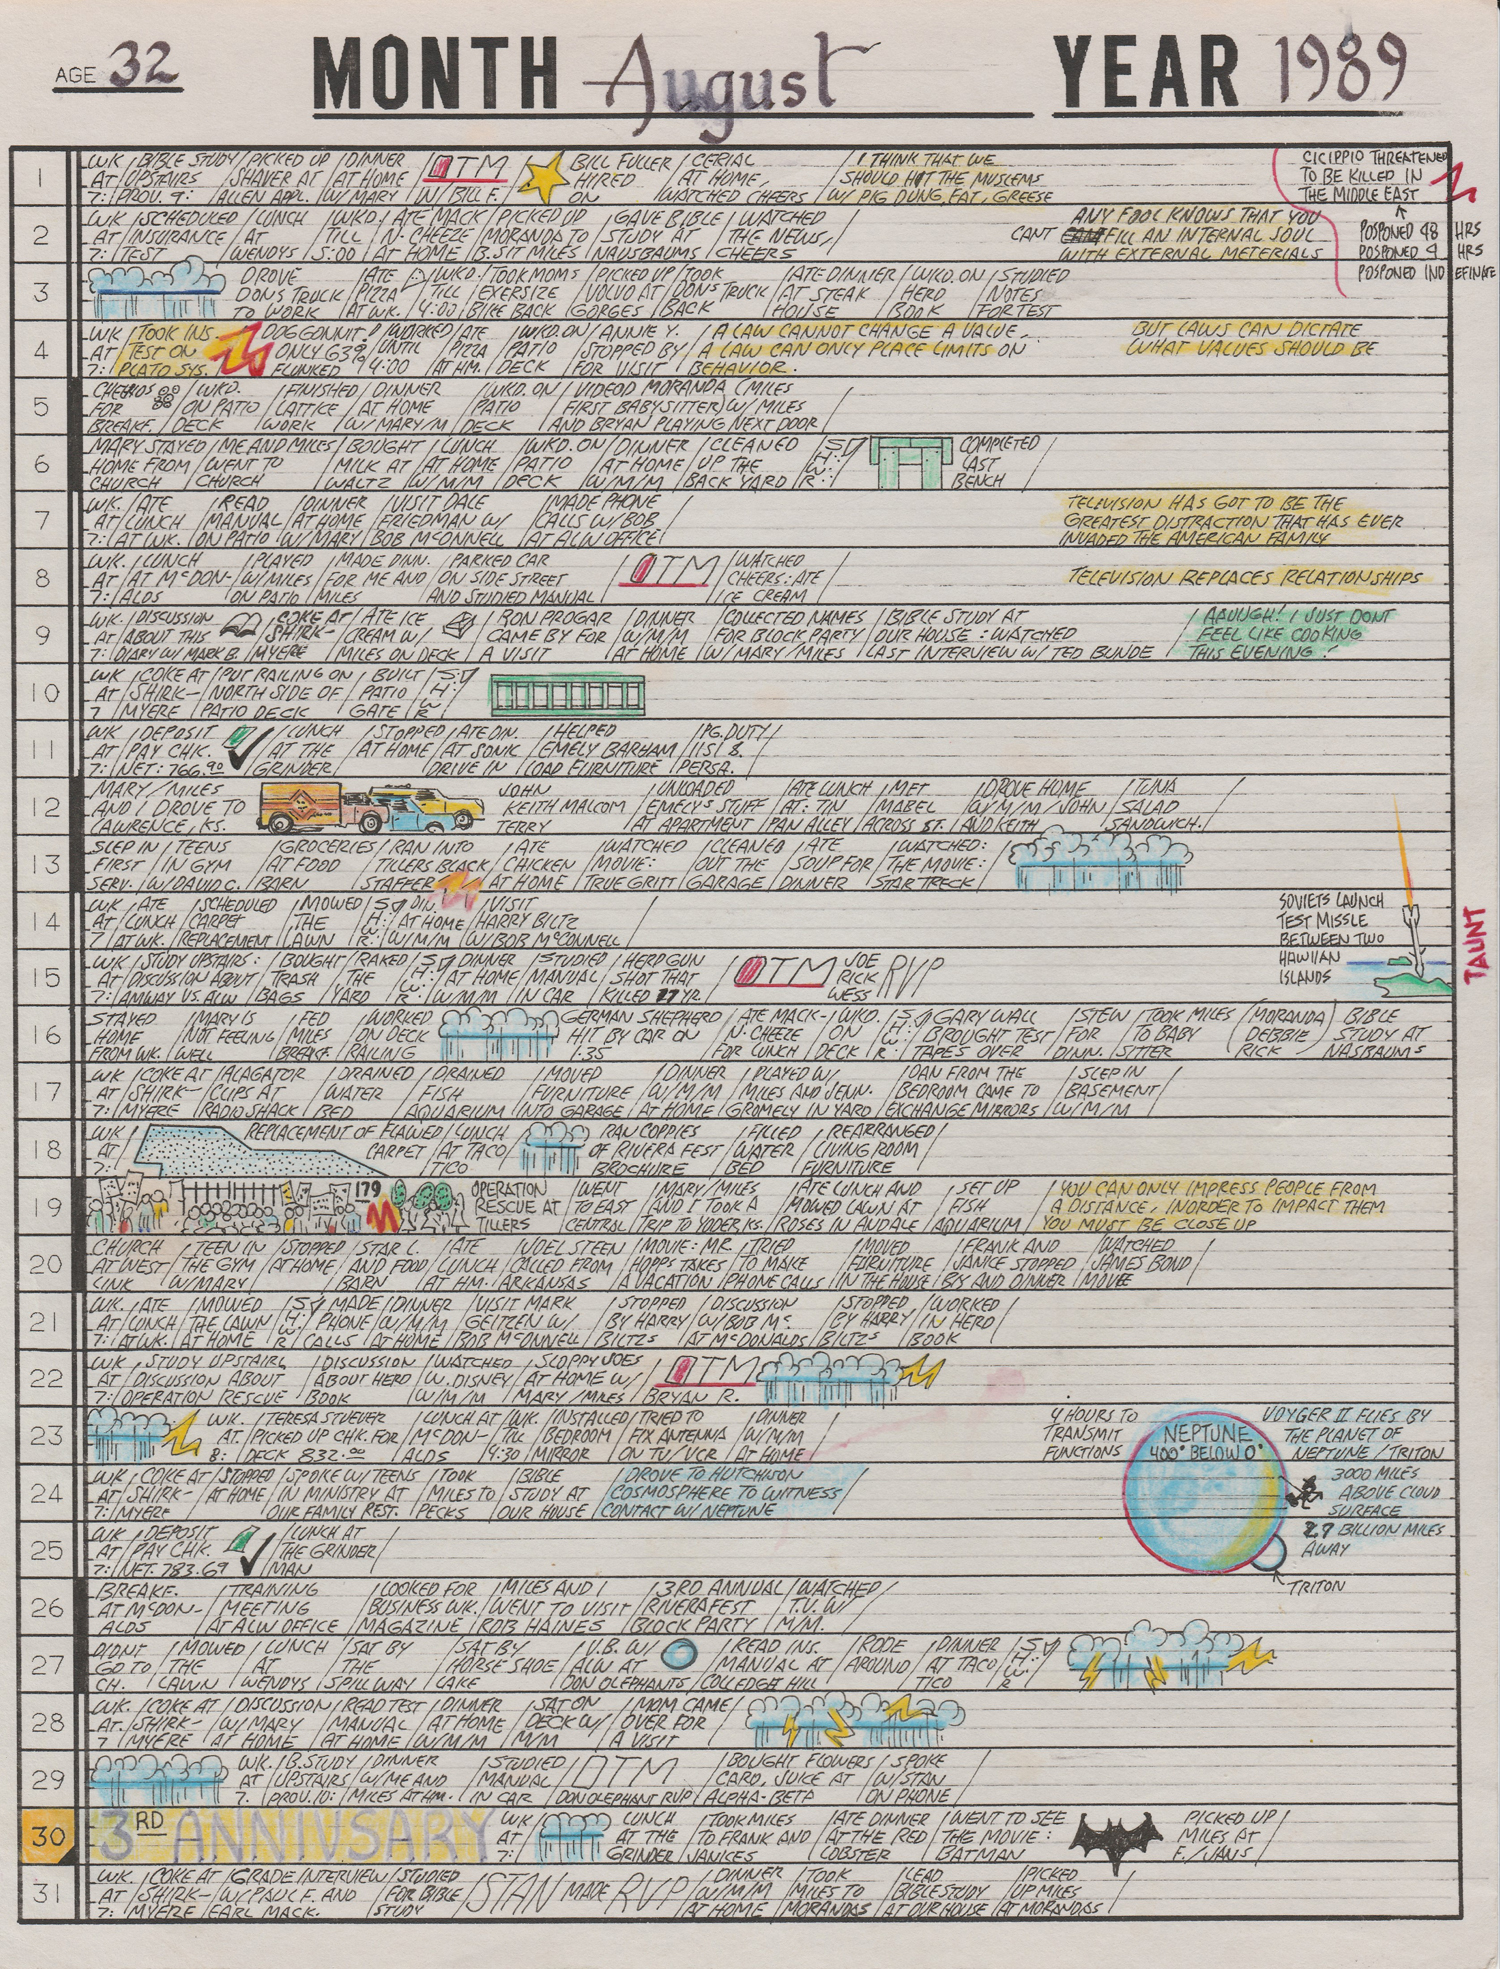 AGE 32 MONTH August YEAR 1989
1
WK / BIBLE STUDY / PICKED UP / DINNER / OTM / BILL FULLER / CERIAL / I THINK THAT WE
AT / UPSTAIRS / SHAVER AT / AT HOME / HIRED / AT HOME, / SHOULD HIT THE MUSLEMS
7: / PROV. 9: / ALLEN APPL. / W/ MARY / IN / BILL F. / ON / WATCHED CHEERS / W/ PIG DUNG, FAT, GREESE
CICIPPIO THREATENED
TO BE KILLED IN
THE MIDDLE EAST
POSPONED 48 HRS
POSPONED 4 HRS
POSPONED INDEFINATE
2
WK / SCHEDULED / LUNCH / WKD. / ATE MACK / PICKED UP / GAVE BIBLE / WATCHED
AT / INSURANCE / AT / TILL / N. CHEEZE / MORANDA TO / STUDY AT / THE NEWS,
7: / TEST / WENDYS / 5:00 / AT HOME / B.SIT MILES / NAUSBAUMS / CHEERS
ANY FOOL KNOWS THAT YOU
CANT FILL AN INTERNAL SOUL
WITH EXTERNAL METERIALS
3
DROVE / ATE / WKD. / TOOK MOMS / PICKED UP / TOOK / ATE DINNER / WKD. ON / STUDIED
DONS TRUCK / PIZZA / TILL / EXERSIZE / VOLVO AT / DONS TRUCK / AT STEAK / HERO / NOTES
TO WORK / AT WK. / 4:00 / BIKE BACK / GORGES / BACK / HOUSE / BOOK / FOR TEST
4
WK / TOOK INS. / DOGGONNIT! / WORKED / ATE / WKD. ON / ANNIE Y. / A LAW CANNOT CHANGE A VALUE,
AT / TEST ON / ONLY 63% / UNTIL / PIZZA / PATIO / STOPPED BY / A LAW CAN ONLY PLACE LIMITS ON
7: / PLATO SYS. / FLUNKED / 4:00 / AT HM. / DECK / FOR VISIT / BEHAVIOR.
BUT LAWS CAN DICTATE
WHAT VALUES SHOULD BE
5
CHEERIOS / WKD. / FINISHED / DINNER / WKD. ON / VIDEOD MORANDA (MILES
FOR / ON PATIO / LATTICE / AT HOME / PATIO / FIRST BABYSITTER) W/ MILES
BREAKF. / DECK / WORK / W/ MARY/M / DECK / AND BRYAN PLAYING NEXT DOOR
6
MARY STAYED / ME AND MILES / BOUGHT / LUNCH / WKD. ON / DINNER / CLEANED / SHWR / COMPLETED
HOME FROM / WENT TO / MILK AT / AT HOME / PATIO / AT HOME / UP THE / LAST
CHURCH / CHURCH / WALTZ / W/M/M / DECK / W/M/M / BACK YARD / BENCH
7
WK. / ATE / READ / DINNER / VISIT DALE / MADE PHONE
AT / LUNCH / MANUAL / AT HOME / FRIEDMAN W/ / CALLS W/ BOB
7: / AT WK. / ON PATIO / W/ MARY / BOB McCONNELL / AT ALW OFFICE
TELEVISION HAS GOT TO BE THE
GREATEST DISTRACTION THAT HAS EVER
INVADED THE AMERICAN FAMILY
8
WK. / LUNCH / PLAYED / MADE DINN. / PARKED CAR / OTM / WATCHED
AT / AT McDON- / W/ MILES / FOR ME AND / ON SIDE STREET / CHEERS: ATE
7: / ALDS / ON PATIO / MILES / AND STUDIED MANUAL / ICE CREAM
TELEVISION REPLACES RELATIONSHIPS
9
WK. / DISCUSSION / COKE AT / ATE ICE / RON PROGAR / DINNER / COLLECTED NAMES / BIBLE STUDY AT
AT / ABOUT THIS / SHIRK- / CREAM W/ / CAME BY FOR / W/M/M / FOR BLOCK PARTY / OUR HOUSE: WATCHED
7: / DIARY W/ MARK B. / MYERE / MILES ON DECK / A VISIT / AT HOME / W/ MARY/MILES / LAST INTERVIEW W/ TED BUNDE
AAUUGH! I JUST DONT
FEEL LIKE COOKING
THIS EVENING!
10
WK / COKE AT / PUT RAILING ON / BUILT / SHWR
AT / SHIRK- / NORTH SIDE OF / PATIO
7 / MYERE / PATIO DECK / GATE
11
WK / DEPOSIT / LUNCH / STOPPED / ATE DIN. / HELPED / PG. DUTY
AT / PAY CHK. / AT THE / AT HOME / AT SONIK / EMELY BARHAM / 115/8.
7: / NET: 766.90 / GRINDER / DRIVE IN / LOAD FURNITURE / PERSA.
12
MARY/MILES / JOHN / UNLOADED / ATE LUNCH / MET / DROVE HOME / TUNA
AND I DROVE TO / KEITH MALCOM / EMELYS STUFF / AT: TIN / MABEL / W/M/M/JOHN / SALAD
LAWRENCE, KS. / TERRY / AT APARTMENT / PAN ALLEY / ACROSS ST. / AND KEITH / SANDWICH.
13
SLEP IN / TEENS / GROCERIES / RAN INTO / ATE / WATCHED / CLEANED / ATE / WATCHED:
FIRST / IN GYM / AT FOOD / TILLERS BLACK / CHICKEN / MOVIE: / OUT THE / SOUP FOR / THE MOVIE:
SERV. / W/ DAVID C. / BARN / STAFFER / AT HOME / TRUE GRITT / GARAGE / DINNER / STAR TRECK
14
WK / ATE / SCHEDULED / MOWED / SHWR / DIN. / VISIT
AT / LUNCH / CARPET / THE / AT HOME / HARRY BILTZ
7 / AT WK. / REPLACEMENT / LAWN / W/M/M / W/ BOB McCONNELL
SOVIETS LAUNCH
TEST MISSLE
BETWEEN TWO
HAWIIAN
ISLANDS
TAUNT
15
WK / STUDY UPSTAIRS: / BOUGHT / RAKED / SHWR / DINNER / STUDIED / HERD GUN / OTM / JOE / RVP
AT / DISCUSSION ABOUT / TRASH / THE / AT HOME / MANUAL / SHOT THAT / RICK
7: / AMWAY VS. ALW / BAGS / YARD / W/M/M / IN CAR / KILLED 17 YR. / WESS
16
STAYED / MARY IS / FED / WORKED / GERMAN SHEPHERD / ATE MACK- / WKD. / SHWR / GARY WALL / STEW / TOOK MILES / (MORANDA) / BIBLE
HOME / NOT FEELING / MILES / ON DECK / HIT BY CAR ON / N. CHEEZE / ON / BROUGHT TEST / FOR / TO BABY / DEBBIE / STUDY AT
FROM WK. / WELL / BREAKF. / RAILING / I-35 / FOR LUNCH / DECK / TAPES OVER / DINN. / SITTER / RICK / NASBAUMS
17
WK / COKE AT / ALAGATOR / DRAINED / DRAINED / MOVED / DINNER / PLAYED W/ / DAN FROM THE / SLEP IN
AT / SHIRK- / CLIPS AT / WATER / FISH / FURNITURE / W/M/M / MILES AND JENN. / BEDROOM CAME TO / BASEMENT
7: / MYERE / RADIO SHACK / BED / AQUARIUM / INTO GARAGE / AT HOME / GROMELY IN YARD / EXCHANGE MIRRORS / W/M/M
18
WK / REPLACEMENT OF FLAWED / LUNCH / RAN COPPIES / FILLED / REARRANGED
AT / CARPET / AT TACO / OF RIVERA FEST / WATER / LIVING ROOM
7: / TICO / BROCHURE / BED / FURNITURE
19
179 / OPERATION / WENT / MARY/MILES / ATE LUNCH AND / SET UP / YOU CAN ONLY IMPRESS PEOPLE FROM
RESCUE AT / TO EAST / AND I TOOK A / MOWED LAWN AT / FISH / A DISTANCE, INORDER TO IMPACT THEM
TILLERS / CENTRAL / TRIP TO YODER KS. / ROSES IN ANDALE / AQUARIUM / YOU MUST BE CLOSE UP
20
CHURCH / TEEN IN / STOPPED / STAR L. / ATE / JOEL STEEN / MOVIE: MR. / TRIED / MOVED / FRANK AND / WATCHED
AT WEST / THE GYM / AT HOME / AND FOOD / LUNCH / CALLED FROM / HOPPS TAKES / TO MAKE / FURNITURE / JANICE STOPPED / JAMES BOND
LINK / W/ MARY / BARN / AT HM. / ARKANSAS / A VACATION / PHONE CALLS / IN THE HOUSE / BY AND DINNER / MOVEE
21
WK. / ATE / MOWED / SHWR / MADE / DINNER / VISIT MARK / STOPPED / DISCUSSION / STOPPED / WORKED
AT / LUNCH / THE LAWN / PHONE / W/M/M / GEITZEN W/ / BY HARRY / W/ BOB Mc / BY HARRY / IN HERO
7: / AT WK. / AT HOME / CALLS / AT HOME / BOB McCONNELL / BILTZS / AT McDONALDS / BILTZS / BOOK
22
WK / STUDY UPSTAIRS / DISCUSSION / WATCHED / SLOPPY JOES / OTM
AT / DISCUSSION ABOUT / ABOUT HERO / W. DISNEY / AT HOME W/
7: / OPERATION RESCUE / BOOK / W/M/M / MARY/MILES / BRYAN R.
23
WK. / TERESA STUEVER / LUNCH AT / WK. / INSTALLED / TRIED TO / DINNER
AT. / PICKED UP CHK. FOR / McDON- / TILL / BEDROOM / FIX ANTENNA / W/M/M
8: / DECK 832.00 / ALDS / 4:30 / MIRROR / ON TV/VCR / AT HOME
4 HOURS TO
TRANSMIT
FUNCTIONS
NEPTUNE
400° BELOW 0°
VOYGER II FLIES BY
THE PLANET OF
NEPTUNE / TRITON
3000 MILES
ABOVE CLOUD
SURFACE
2.7 BILLION MILES
AWAY
TRITON
24
WK / COKE AT / STOPPED / SPOKE W/ TEENS / TOOK / BIBLE / DROVE TO HUTCHISON
AT / SHIRK- / AT HOME / IN MINISTRY AT / MILES TO / STUDY AT / COSMOSPHERE TO WITNESS
7: / MYERE / OUR FAMILY REST. / PECKS / OUR HOUSE / CONTACT W/ NEPTUNE
25
WK / DEPOSIT / LUNCH AT
AT / PAY CHK. / THE GRINDER
7: / NET: 783.69 / MAN
26
BREAKF. / TRAINING / LOOKED FOR / MILES AND I / 3RD ANNUAL / WATCHED
AT McDON- / MEETING / BUSINESS WK. / WENT TO VISIT / RIVERAFEST / T.V. W/
ALDS / AT ALW OFFICE / MAGAZINE / ROB HAINES / BLOCK PARTY / M/M.
27
DIDNT / MOWED / LUNCH / SAT BY / SAT BY / V.B. W/ / READ INS. / RODE / DINNER / SHWR
GO TO / THE / AT / THE / HORSE SHOE / ALW AT / MANUAL AT / AROUND / AT TACO
CH. / LAWN / WENDYS / SPILLWAY / LAKE / DON OLEPHANTS / COLLEDGE HILL / TICO
28
WK. / COKE AT / DISCUSSION / READ TEST / DINNER / SAT ON / MOM CAME
AT. / SHIRK- / W/ MARY / MANUAL / AT HOME / DECK W/ / OVER FOR
7 / MYERE / AT HOME / AT HOME / W/M/M / M/M / A VISIT
29
WK. / B.STUDY / DINNER / STUDIED / OTM / BOUGHT FLOWERS / SPOKE
AT / UPSTAIRS / W/ ME AND / MANUAL / CARD, JUICE AT / W/ STAN
7. / PROV. 10: / MILES AT HM. / IN CAR / DON OLEPHANT RVP / ALPHA-BETA / ON PHONE
30
3RD ANNIVSARY
WK / LUNCH / TOOK MILES / ATE DINNER / WENT TO SEE / PICKED UP
AT / AT THE / TO FRANK AND / AT THE RED / THE MOVIE: / MILES AT
7: / GRINDER / JANICES / LOBSTER / BATMAN / F./JANS
31
WK. / COKE AT / GRADE INTERVIEW / STUDIED / STAN MADE RVP / DINNER / TOOK / LEAD / PICKED
AT / SHIRK- / W/ PAUL F. AND / FOR BIBLE / W/M/M / MILES TO / BIBLE STUDY / UP MILES
7: / MYERE / EARL MACK. / STUDY / AT HOME / MORANDAS / AT OUR HOUSE / AT MORANDAS